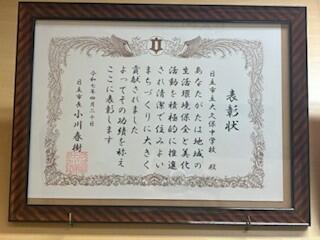 表彰状
日立市立大久保中学校 殿
あなたがたは地域の
生活環境保全と美化
活動を積極的に推進
され清潔で住みよい
まちづくりに大きく
貢献されました
よってその功績を称え
ここに表彰します
令和七年四月二十日
日立市長 小川春樹